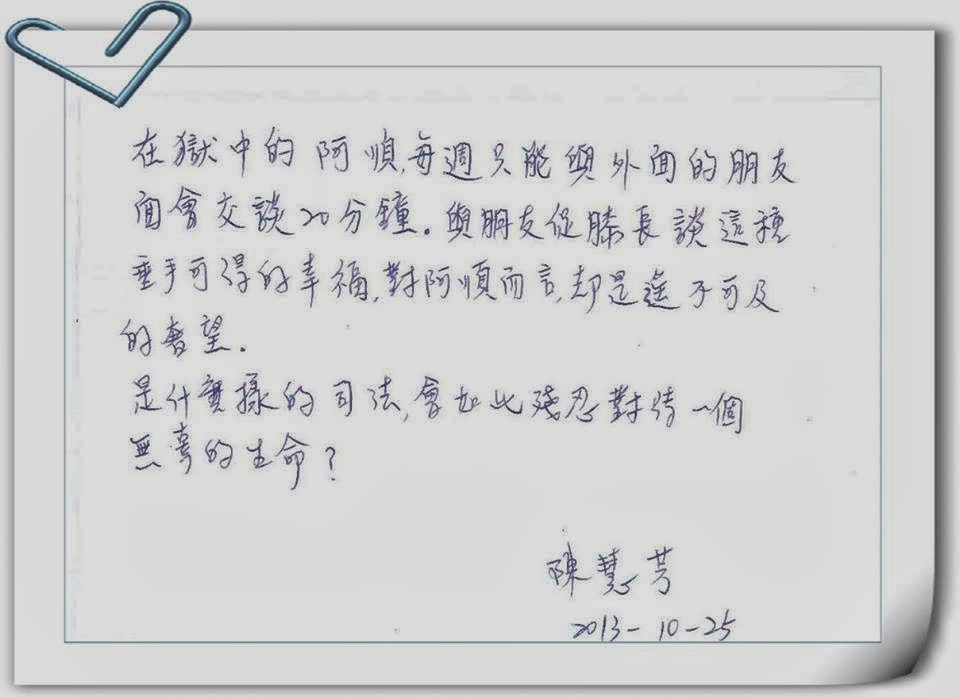 在獄中的阿順,每週只能與外面的朋友
面會交談20分鐘。與朋友促膝長談這種
垂手可得的幸福,對阿順而言,却是遙不可及
的奢望.
是什麼樣的司法,會如此殘忍對待一個
無辜的生命?
陳慧芳
2013-10-25